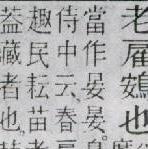 老雇鴳也
當作晏晏。
侍中云、春
趣民耘苗
葢藏者也、